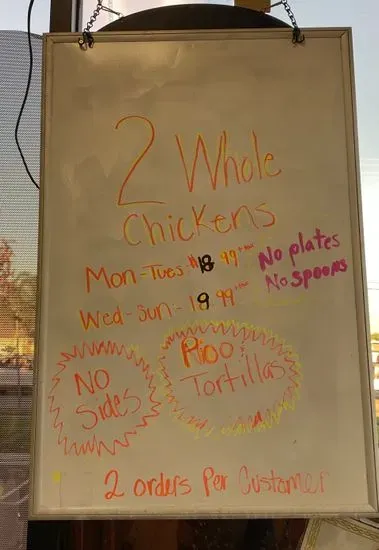 2 Whole
Chickens
Mon-Tues-$18 99 +tax
Wed-Sun:-19 99 +tax
No plates
No spoons
NO
Sides
Pico &
Tortillas
2 orders Per Customer